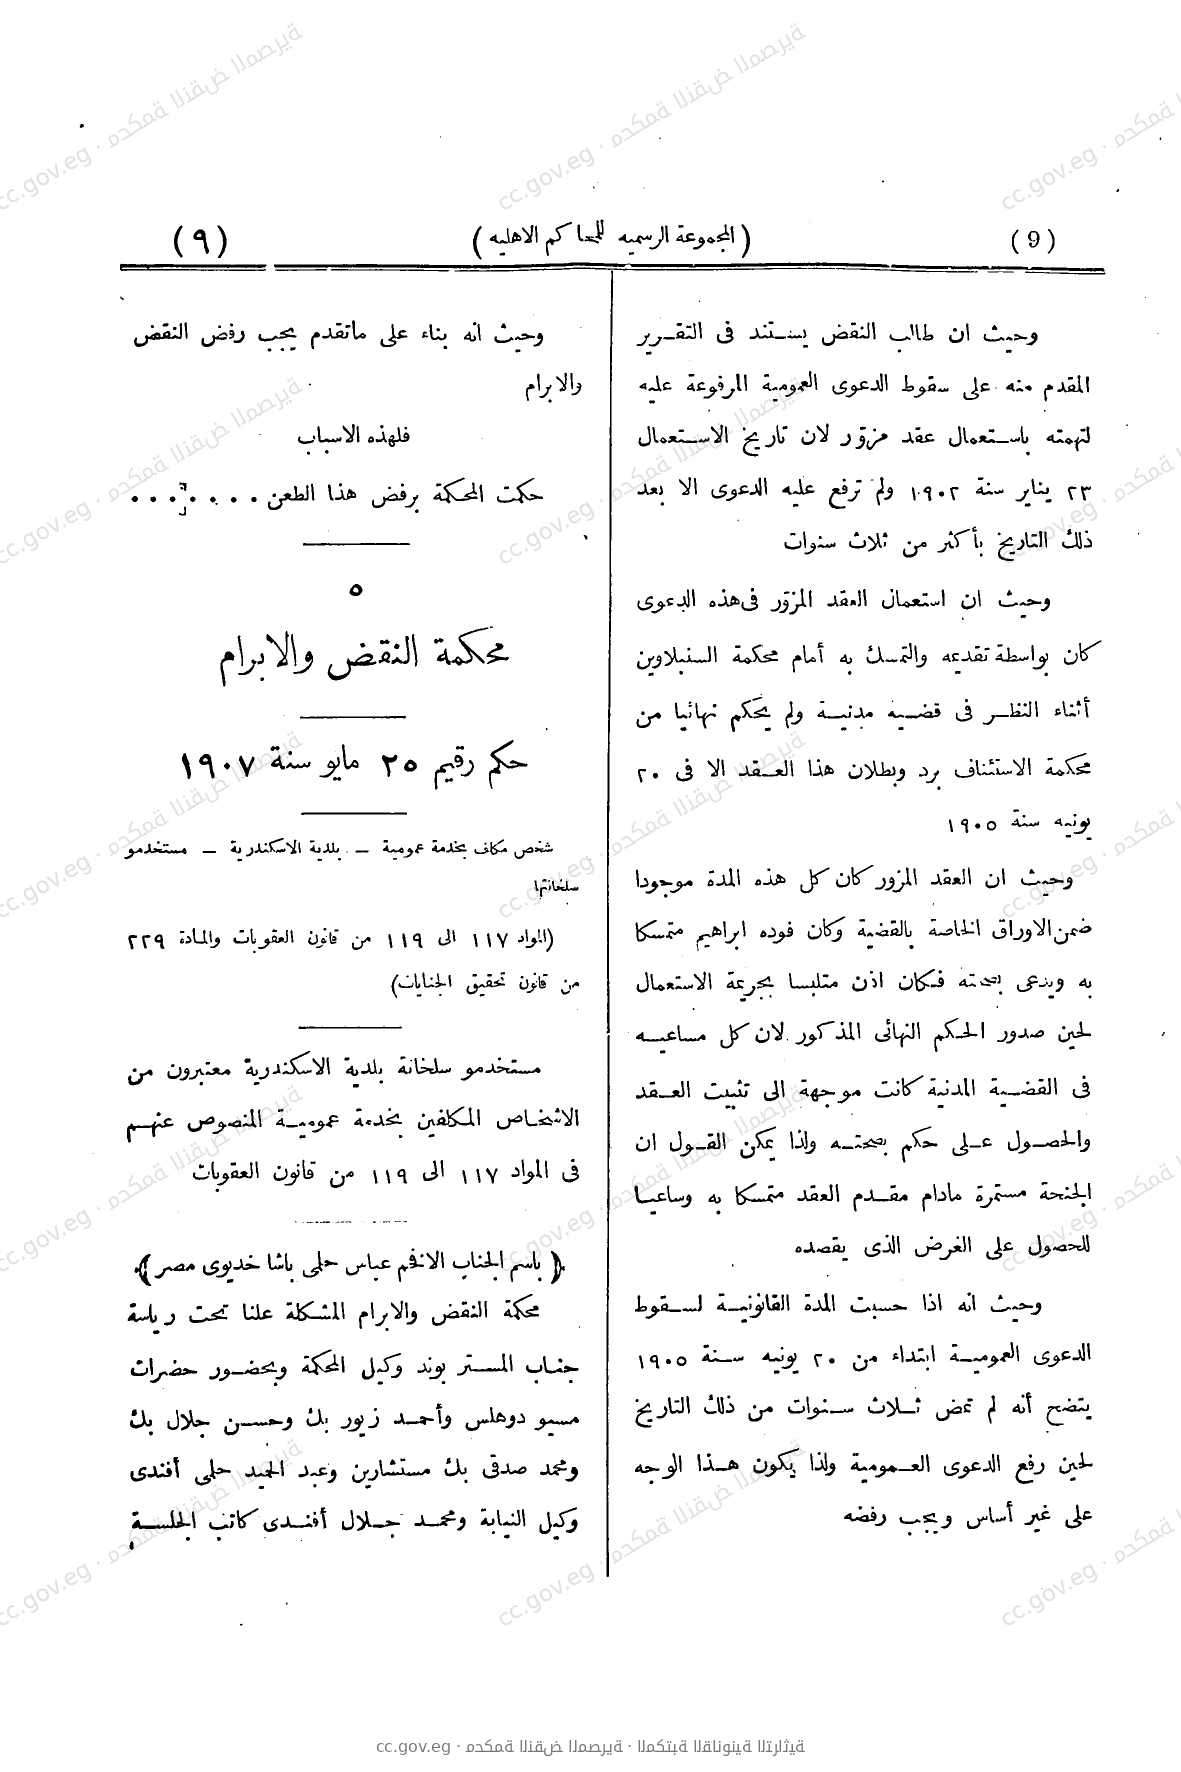 (9)
(المجموعة الرسميه للمحاكم الاهليه)
(٩)
وحيث ان طالب النقض يستند فى التقرير
المقدم منه على سقوط الدعوى العمومية المرفوعة عليه
لتهمته باستعمال عقد مزوّر لان تاريخ الاستعمال
٢٣ يناير سنة ١٩٠٢ ولم ترفع عليه الدعوى الا بعد
ذلك التاريخ بأكثر من ثلاث سنوات
وحيث ان استعمال العقد المزوّر فى هذه الدعوى
كان بواسطة تقديمه والتمسك به أمام محكمة السنبلاوين
أثناء النظر فى قضيه مدنية ولم يحكم نهائيا من
محكمة الاستئناف برد وبطلان هذا العقد الا فى ٢٠
يونيه سنة ١٩٠٥
وحيث ان العقد المزور كان كل هذه المدة موجودا
ضمن الاوراق الخاصة بالقضية وكان فوده ابراهيم متمسكا
به ويدعى بصحته فكان اذن متلبسا بجريمة الاستعمال
لحين صدور الحكم النهائى المذكور لان كل مساعيه
فى القضية المدنية كانت موجهة الى تثبيت العقد
والحصول على حكم بصحته ولذا يمكن القول ان
الجنحة مستمرة مادام مقدم العقد متمسكا به وساعيا
للحصول على الغرض الذى يقصده
وحيث انه اذا حسبت المدة القانونية لسقوط
الدعوى العمومية ابتداء من ٢٠ يونيه سنة ١٩٠٥
يتضح أنه لم تمض ثلاث سنوات من ذلك التاريخ
لحين رفع الدعوى العمومية ولذا يكون هذا الوجه
على غير أساس ويجب رفضه
وحيث انه بناء على ماتقدم يجب رفض النقض
والابرام
فلهذه الاسباب
حكمت المحكمة برفض هذا الطعن . . . . . . .
٥
محكمة النقض والابرام
حكم رقيم ٢٥ مايو سنة ١٩٠٧
شخص مكلف بخدمة عمومية — بلدية الاسكندرية — مستخدمو
سلخانتها
(المواد ١١٧ الى ١١٩ من قانون العقوبات والمادة ٢٢٩
من قانون تحقيق الجنايات)
مستخدمو سلخانة بلدية الاسكندرية معتبرون من
الاشخاص المكلفين بخدمة عمومية المنصوص عنهم
فى المواد ١١٧ الى ١١٩ من قانون العقوبات
(باسم الجناب الافخم عباس حلمى باشا خديوى مصر)
محكمة النقض والابرام المشكلة علنا تحت رياسة
جناب المستر بوند وكيل المحكمة وبحضور حضرات
مسيو دوهلس وأحمد زيور بك وحسن جلال بك
ومحمد صدقى بك مستشارين وعبد الحميد حلمى أفندى
وكيل النيابة ومحمد جلال أفندى كاتب الجلسة
cc.gov.eg · محكمة النقض المصرية · المكتبة القانونية التراثية